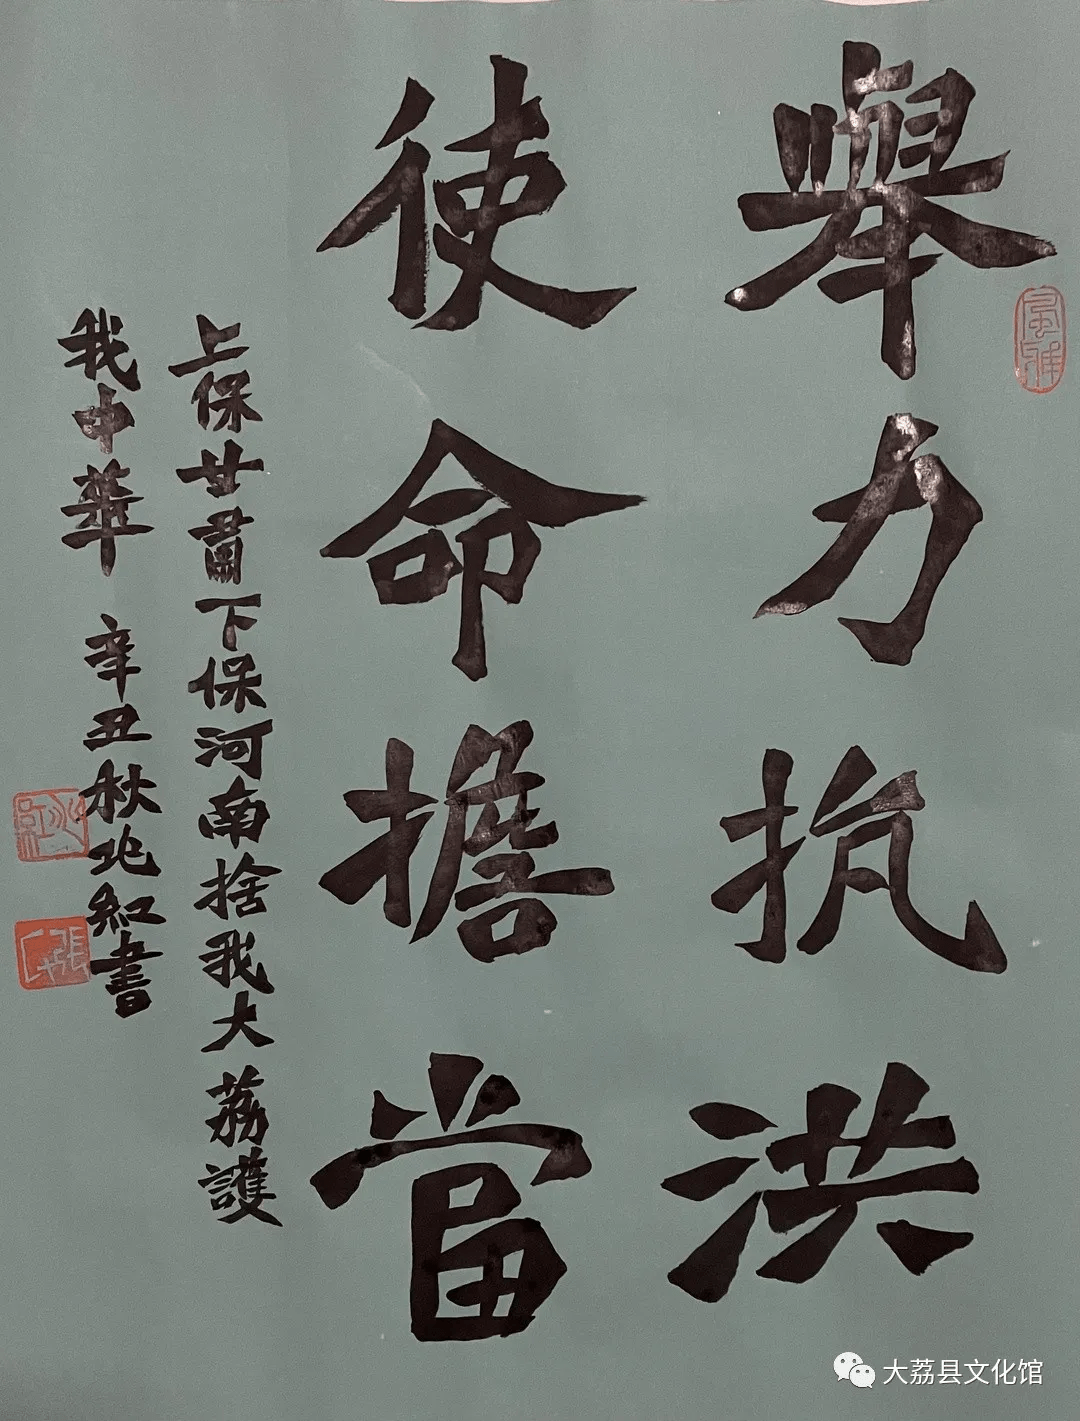 舉力抗洪
使命擔當
上保甘肅下保河南捨我大荔護
我中華 辛丑秋 紅書
風雅
大荔县文化馆